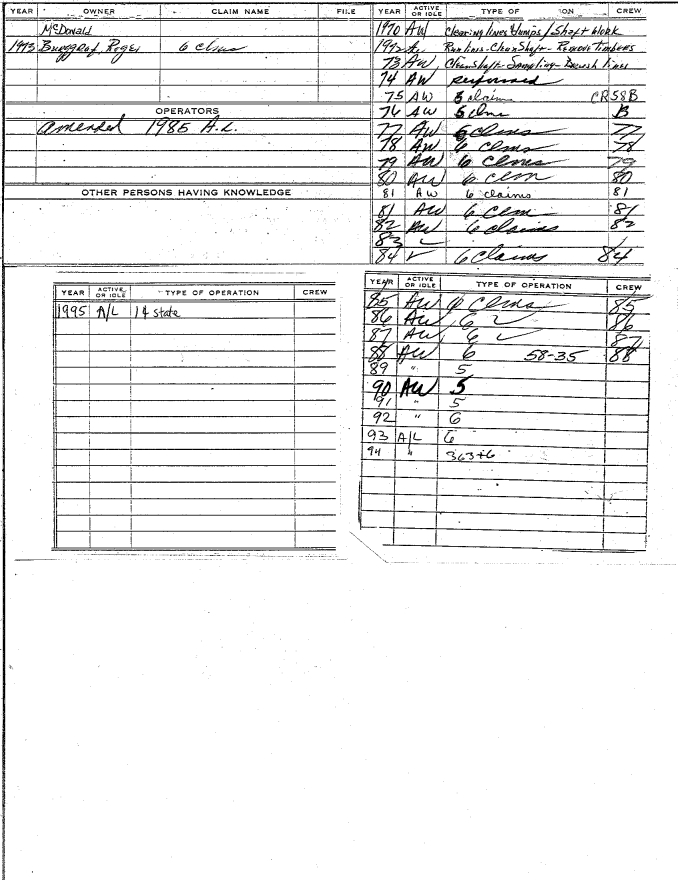 YEAR OWNER CLAIM NAME FILE
McDonald
1973 Burggraf, Roger 6 Clms
OPERATORS
amended 1985 A.L.
OTHER PERSONS HAVING KNOWLEDGE
YEAR ACTIVE OR IDLE TYPE OF ION CREW
1970 AW Clearing lines Dumps / Shaft work
1972 Run lines - Clean Shaft - Remove Timbers
73 AW Clean Shaft - Sampling - Brush lines
74 AW performed
75 AW 5 claim CR58B
76 AW 5 clms B
77 AW 6 clms 77
78 AW 6 Clms 78
79 AW 6 Clms 79
80 AW 6 clm 80
81 AW 6 claims 81
81 AW 6 Clm 81
82 AW 6 claims 82
83 ✓
84 ✓ 6 Claims 84
YEAR ACTIVE OR IDLE TYPE OF OPERATION CREW
1995 A/L 14 state
YEAR ACTIVE OR IDLE TYPE OF OPERATION CREW
85 AW 6 Clms 85
86 AW 6 ✓ 86
87 AW 6 ✓ 87
88 AW 6 58-35 88
89 " 5
90 AW 5
91 " 5
92 " 6
93 A/L 6
94 " 363+6